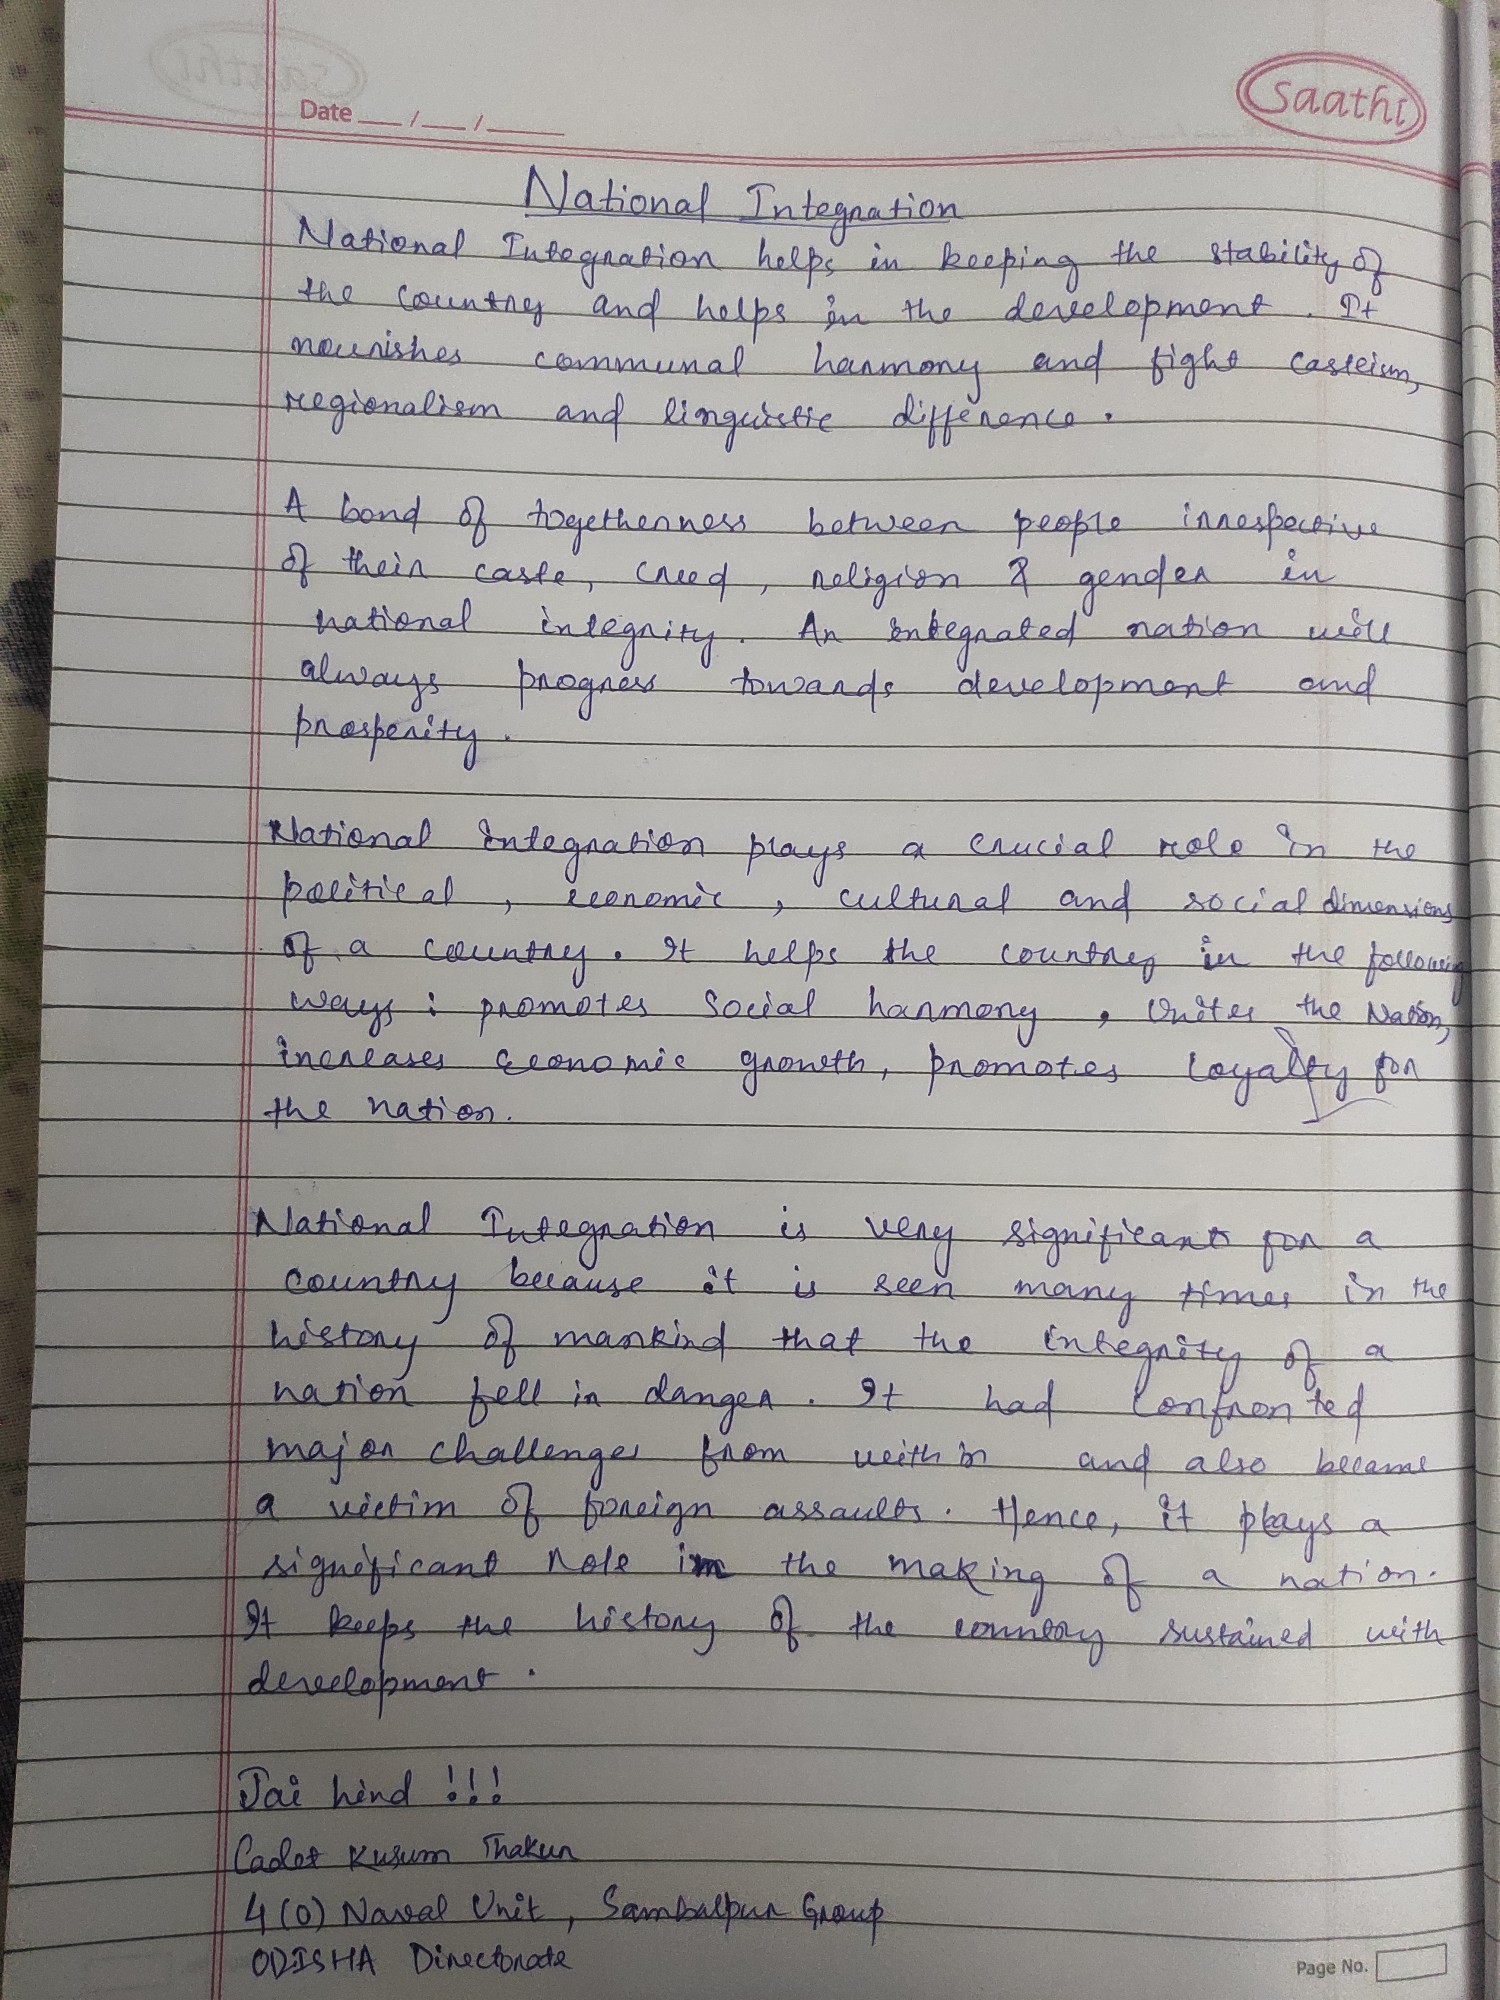 Saathi
Date __/__/____
National Integration
National Integration helps in keeping the stability of
the country and helps in the development. It
nourishes communal harmony and fight casteism,
regionalism and linguistic difference.
A bond of togetherness between people irrespective
of their caste, creed, religion & gender in
national integrity. An integrated nation will
always progress towards development and
prosperity.
National integration plays a crucial role in the
political, economic, cultural and social dimensions
of a country. It helps the country in the following
ways: promotes social harmony, Unites the Nation,
increases economic growth, promotes loyalty for
the nation.
National Integration is very significant for a
country because it is seen many times in the
history of mankind that the integrity of a
nation fell in danger. It had confronted
major challenges from within and also became
a victim of foreign assaults. Hence, it plays a
significant role in the making of a nation.
It keeps the history of the country sustained with
development.
Jai hind !!!
Cadet Kusum Thakur
4(O) Naval Unit, Sambalpur Group
ODISHA Directorate
Page No.